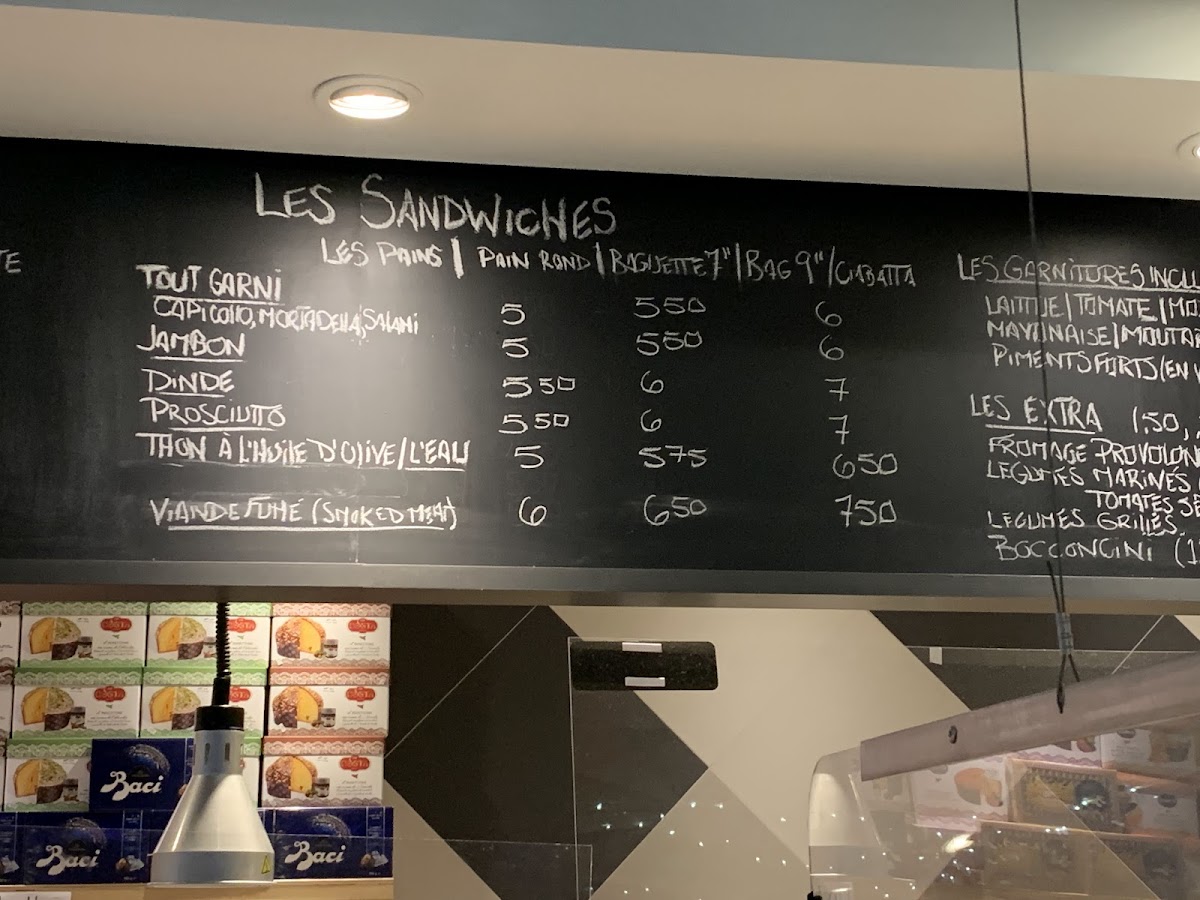 TE
LES SANDWICHES
LES PAINS | PAIN ROND | BAGUETTE 7" | BAG 9" / CIABATTA
TOUT GARNI
CAPICOLLO, MORTADELLA, SALAMI 5 550 6
JAMBON 5 550 6
DINDE 550 6 7
PROSCIUTTO 550 6 7
THON À L'HUILE D'OLIVE/L'EAU 5 575 650
VIANDE FUMÉ (SMOKED MEAT) 6 650 750
LES GARNITURES INCLU
LAITUE | TOMATE | MO
MAYONAISE | MOUTAR
PIMENTS FORTS (EN V
LES EXTRA 1,50,
FROMAGE PROVOLON
LEGUMES MARINÉS
TOMATES SÉ
LEGUMES GRILLÉS
BOCCONCINI (1
Baci
Baci
Baci